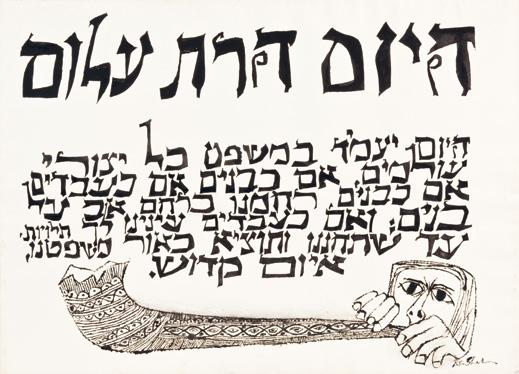 היום הרת עולם
היום יעמיד במשפט כל יצורי
עולמים. אם כבנים אם כעבדים
אם כבנים רחמנו כרחם אב על
בנים: ואם כעבדים עינינו לך תלויות.
עד שתחננו ותוציא כאור משפטנו.
איום קדוש.